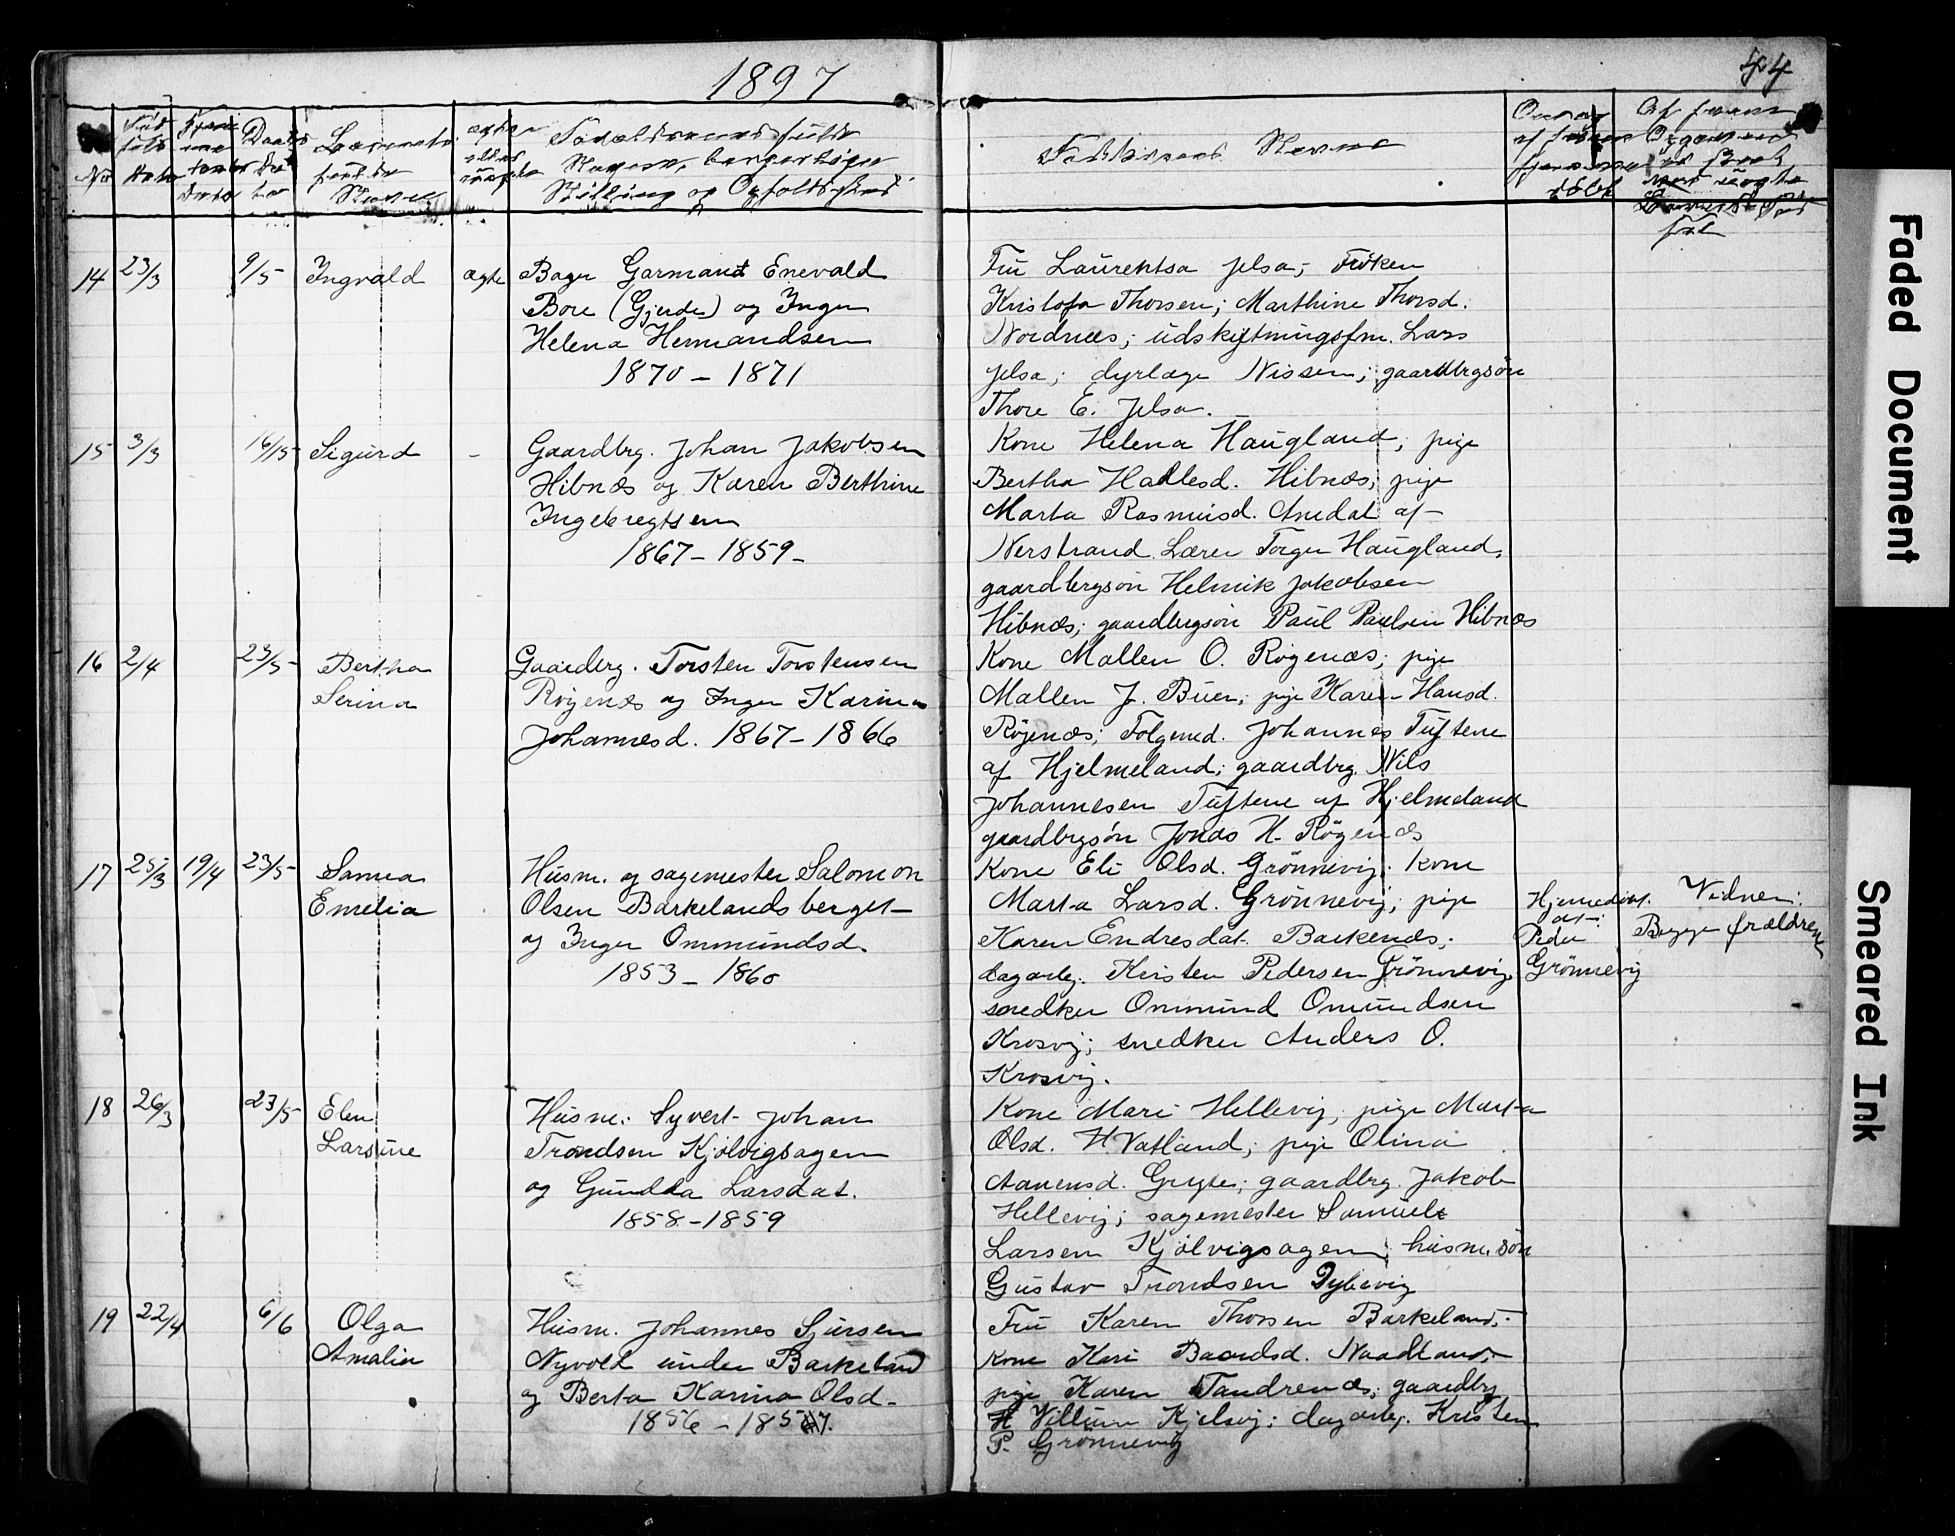 1897
44
No
Forældrenes fulde
Faddernes Navne
14 23/3 9/5 Ingvald ægte Bager Garmand Enevald
Bore (Gjerde) og Inger
Helena Hermandsen
1870 - 1871
Fru Laurentsa Jelsa; Frøken
Kristofa Thorsen; Marthine Thorsd.
Nordnæs; udskiftningsfm. Lars
Jelsa; dyrlæge Nissen; gaardbrgsøn
Thore E. Jelsa.
15 3/3 16/5 Sigurd - Gaardbrg. Johan Jakobsen
Hibnæs og Karen Berthine
Ingebregtsen
1867 - 1859 -
Kone Helena Haugland; pige
Bertha Hallesd. Hibnæs; pige
Marta Rasmusd. Anedal af
Nerstrand. Lærer Torger Haugland,
gaardbergsøn Helmik Jakobsen
Hibnæs; gaardbergsøn Paul Paulsen Hibnæs
16 2/4 23/5 Bertha
Serina
Gaardbrg. Torsten Torstensen
Røgenæs og Inger Karina
Johannesd. 1867 - 1866
Kone Mallen O. Røgenæs; pige
Mallen J. Buer; pige Karen Hansd.
Røgenæs; Folgemd. Johannes Tuftene
af Hjelmeland; gaardbrg. Nils
Johannesen Tuftene af Hjelmeland
gaardbrgsøn Jonas H. Røgenæs
17 25/3 19/4 23/5 Samea
Emelia
Husm. og sagemester Salomon
Olsen Barkelandsberget
og Inger Ommundsd.
1853 - 1860
Kone Eli Olsd. Grønnevig; kone
Marta Larsd. Grønnevig; pige
Karen Endresdat. Barkenæs;
dagarbg. Kristen Pedersen Grønnevig
snedker Ommund Omundsen
Krosvig; snedker Anders O.
Krosvig.
Hjemedøbt.
af:
Peder
Grønnevig
Vidner:
Begge forældrene
18 26/3 23/5 Elen
Larsine
Husm. Syvert Johan
Trondsen Kjølvigsagen
og Gundla Larsdat.
1858 - 1859
Kone Mari Hellevig; pige Marta
Olsd. H. Vatland; pige Olina
Aanensd. Gryte; gaardbrg. Jakob
Hellevig; sagemester Samuel
Larsen Kjølvigsagen; husm.søn
Gustav Trondsen Dybevig
19 22/4 6/6 Olga
Amalia
Husm. Johannes Sjursen
Nyvold under Barkeland
og Berta Karina Olsd.
1856 - 1857.
Fru Karen Thorsen Barkeland;
Kone Kari Baardsd. Naadland;
pige Karen Tandrenæs; gaardbrg
Villum Kjelsvig; dagarbg. Kristen
P. Grønnevig
Faded Document
Smeared Ink